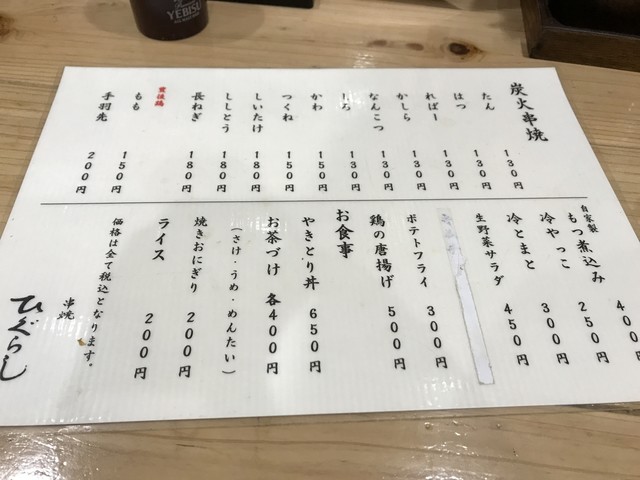 YEBISU
炭火串焼
たん 130円
はつ 130円
ればー 130円
かしら 130円
なんこつ 130円
しろ 130円
かわ 150円
つくね 150円
しいたけ 180円
ししとう 180円
長ねぎ 180円
もも 150円
手羽先 200円
自家製
もつ煮込み 400
冷やっこ 250円
冷とまと 300円
生野菜サラダ 450円
ポテトフライ 300円
鶏の唐揚げ 500円
お食事
やきとり丼 650円
お茶づけ 各400円
(さけ・うめ・めんたい)
焼きおにぎり 200円
ライス 200円
価格は全て税込となります。
串焼
ひぐらし